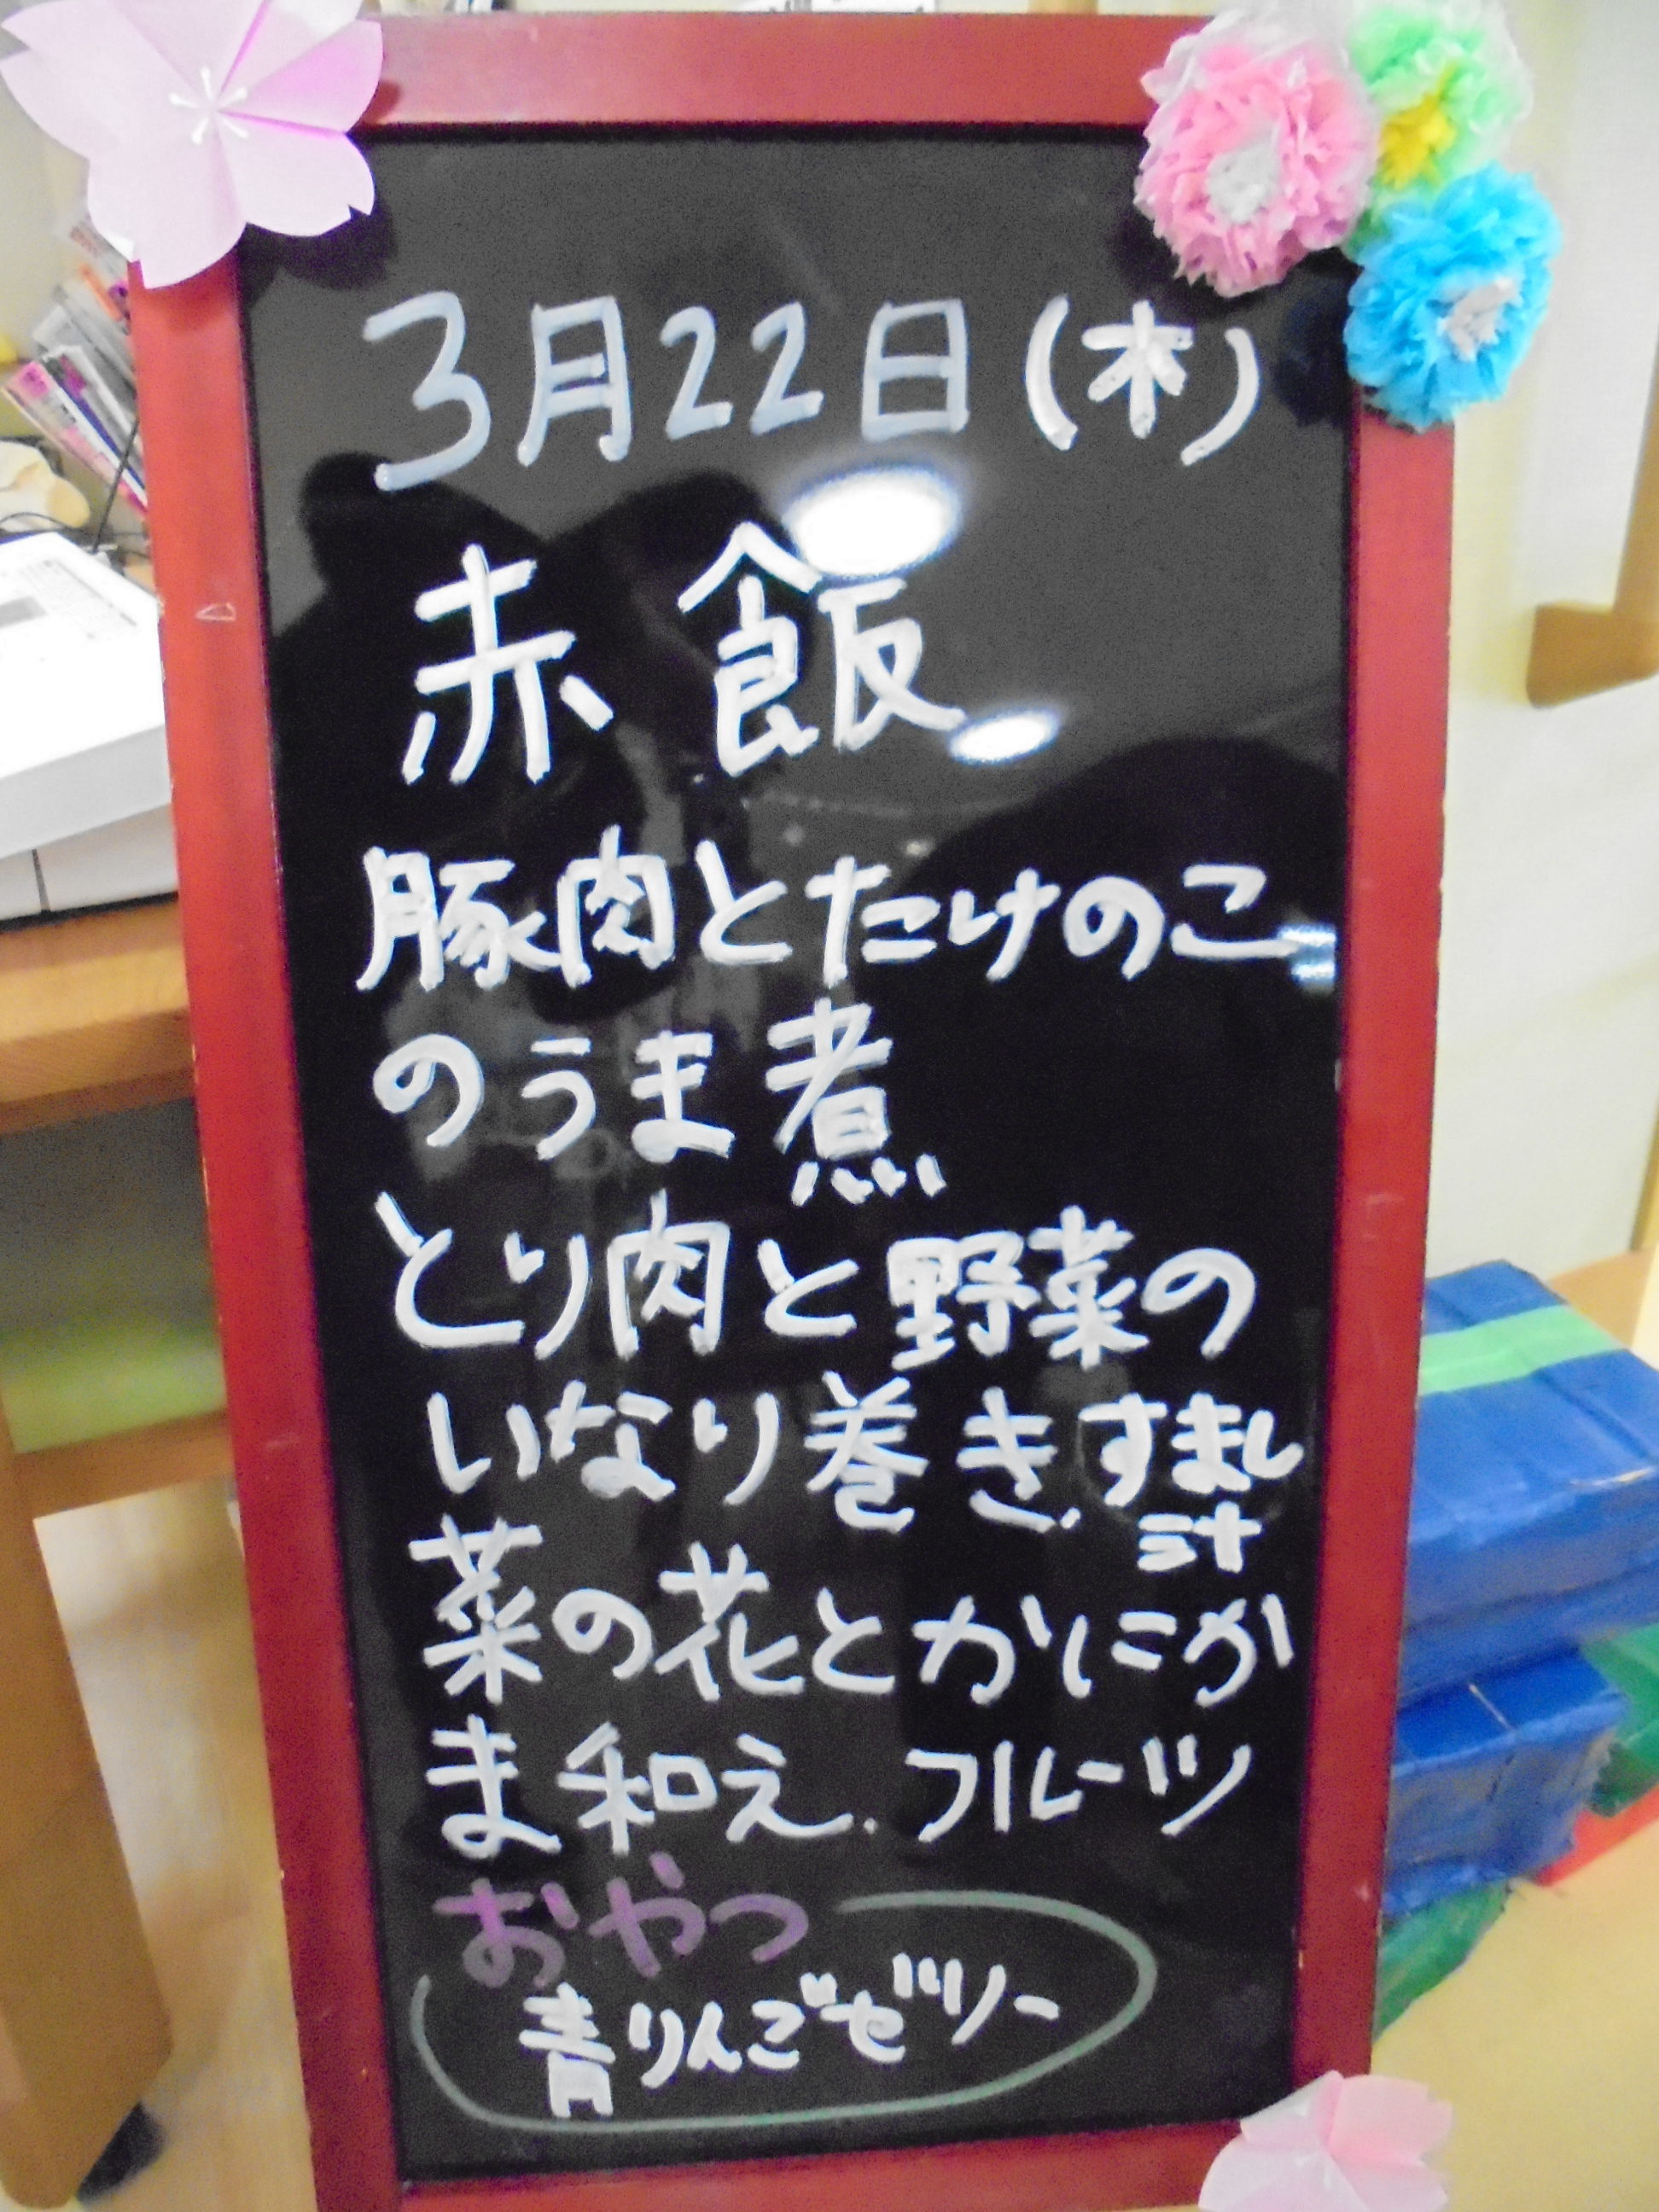 3月22日(木)
赤飯
豚肉とたけのこ
のうま煮
とり肉と野菜の
いなり巻き.すまし
汁
菜の花とかにか
ま和え.フルーツ
おやつ
青りんごゼリー